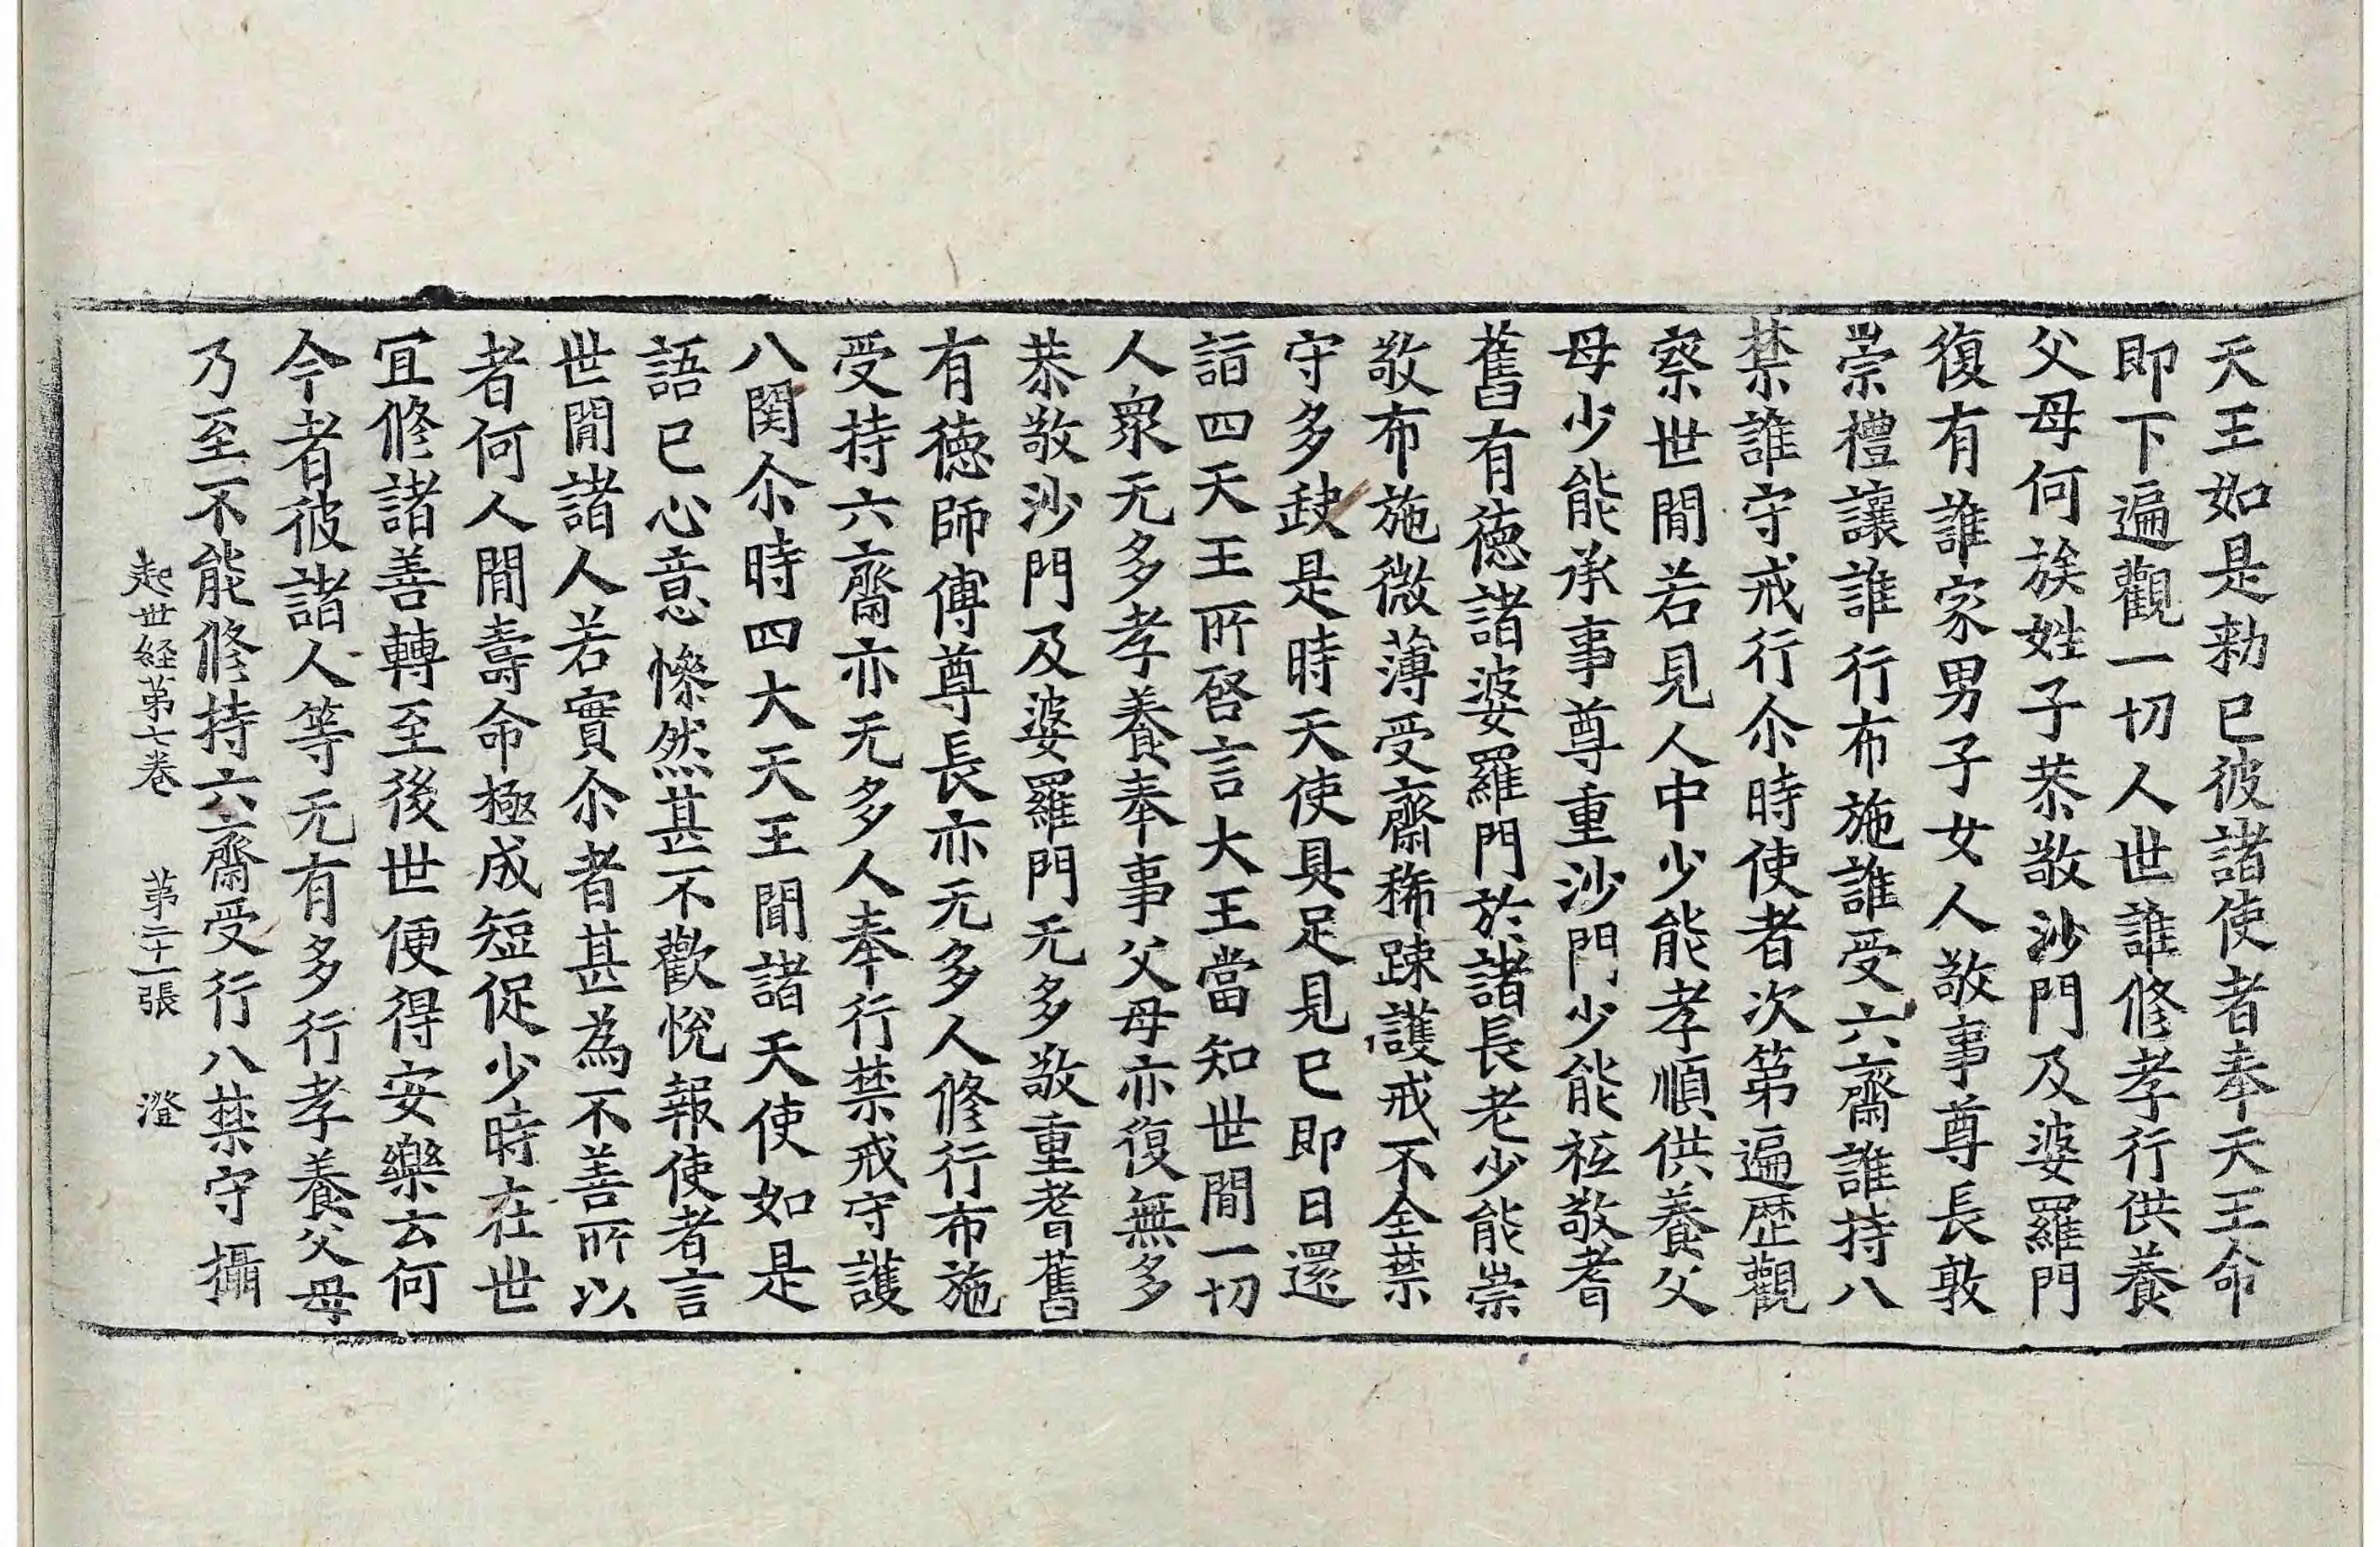 天王如是勑已彼諸使者奉天王命
即下遍觀一切人世誰修孝行供養
父母何族姓子恭敬沙門及婆羅門
復有誰家男子女人敬事尊長敦
崇禮讓誰行布施誰受六齋誰持八
禁誰守戒行尒時使者次第遍歷觀
察世閒若見人中少能孝順供養父
母少能承事尊重沙門少能祗敬耆
舊有德諸婆羅門於諸長老少能崇
敬布施微薄受齋稀踈護戒不全禁
守多𡙇是時天使具足見已即日還
詣四天王所啓言大王當知世閒一切
人衆无多孝養奉事父母亦復無多
恭敬沙門及婆羅門无多敬重耆舊
有德師傅尊長亦无多人修行布施
受持六齋亦无多人奉行禁戒守護
八関尒時四大天王聞諸天使如是
語已心意慘然甚不歡悅報使者言
世閒諸人若實尒者甚為不善所以
者何人閒壽命極成短促少時在世
冝修諸善轉至後世便得安樂云何
今者彼諸人等无有多行孝養父母
乃至不能修持六齋受行八禁守攝
起世経苐七卷 苐二十一張 澄